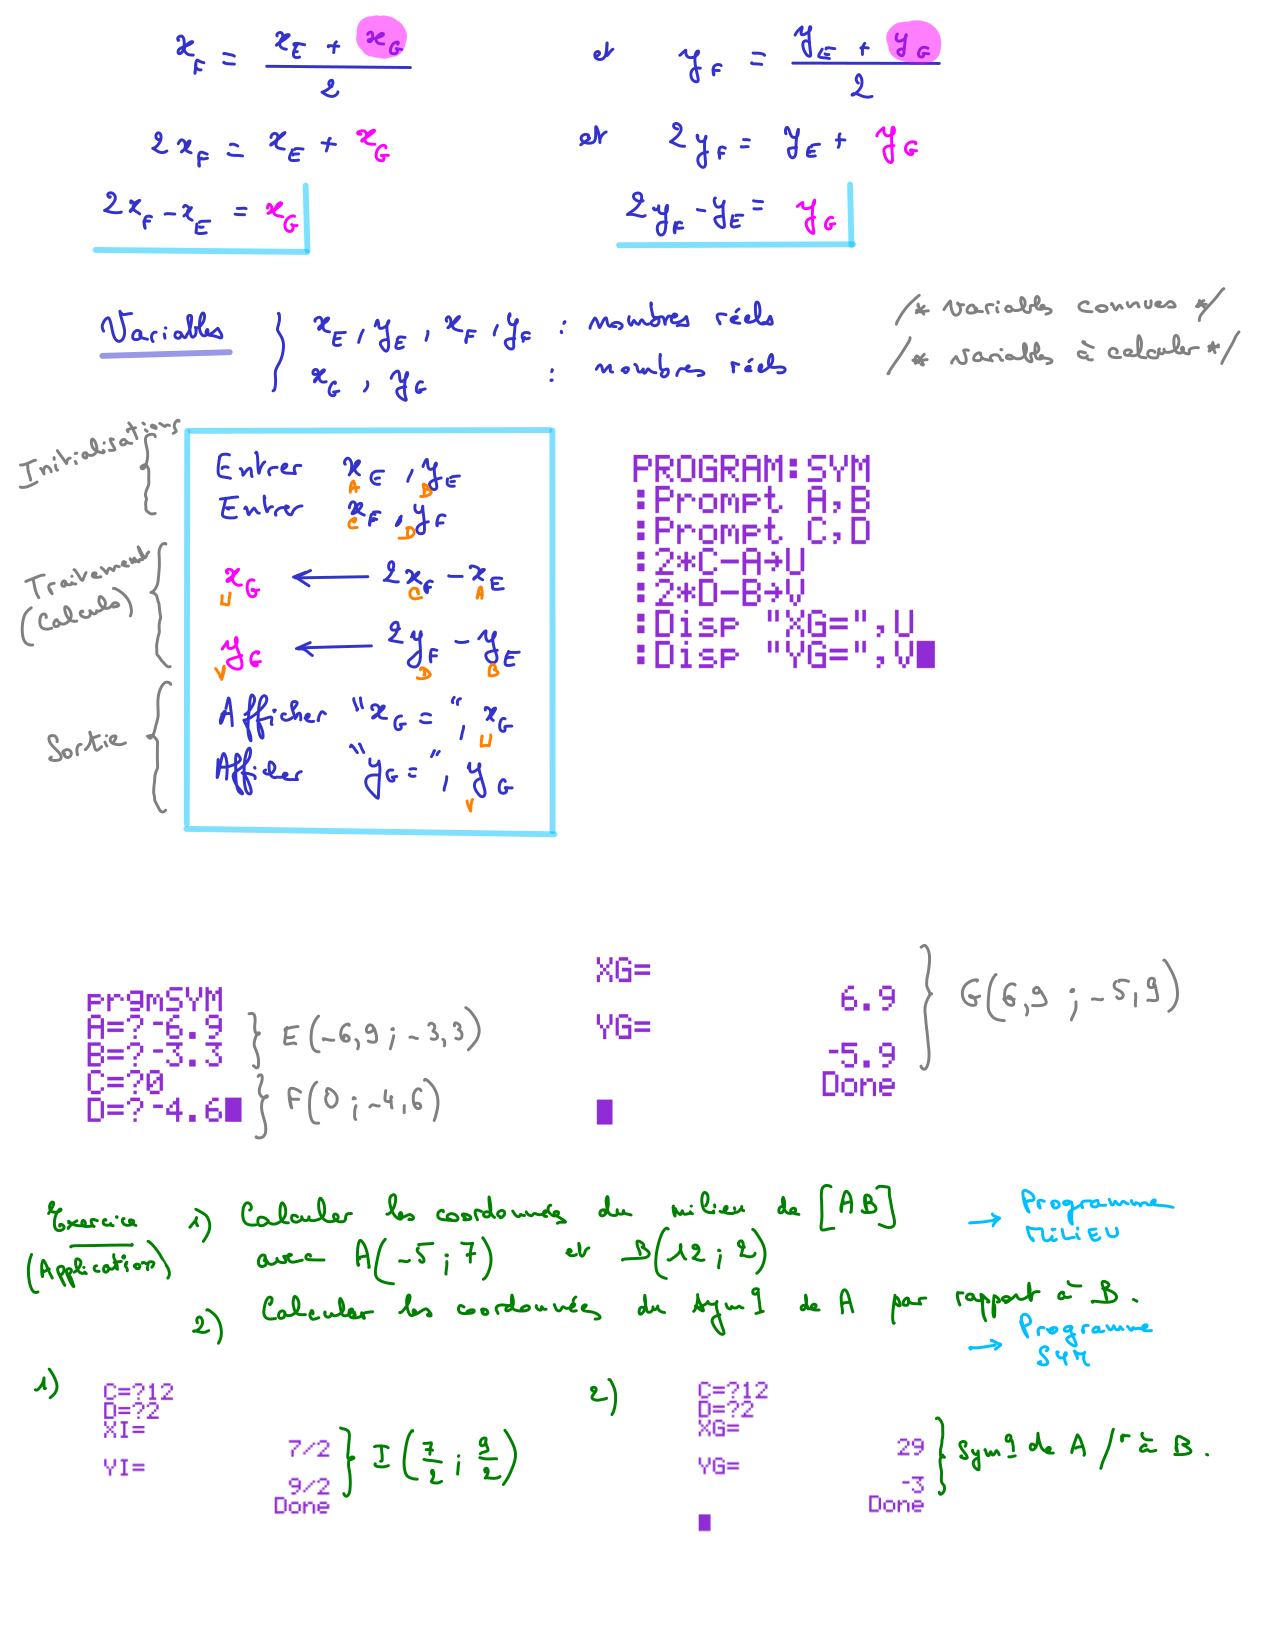 x_F = (x_E + x_G)/2 et y_F = (y_E + y_G)/2
2x_F = x_E + x_G et 2y_F = y_E + y_G
2x_F - x_E = x_G 2y_F - y_E = y_G
Variables } x_E, y_E, x_F, y_F : nombres réels /* variables connues */
x_G, y_G : nombres réels /* variables à calculer */
Initialisations {
Entrer x_E, y_E
A B
Entrer x_F, y_F
C D
Traitement (Calculs) {
x_G ← 2x_F - x_E
U C A
y_G ← 2y_F - y_E
V D B
Sortie {
Afficher "x_G = ", x_G
U
Afficher "y_G = ", y_G
V
PROGRAM:SYM
:Prompt A,B
:Prompt C,D
:2*C-A→U
:2*D-B→V
:Disp "XG=",U
:Disp "YG=",V
prgmSYM
A=?-6.9
B=?-3.3
} E(-6,9 ; -3,3)
C=?0
D=?-4.6
} F(0 ; -4,6)
XG=
6.9
YG=
-5.9
Done
} G(6,9 ; -5,9)
Exercice (Application)
1) Calculer les coordonnées du milieu de [AB] → Programme MILIEU
avec A(-5 ; 7) et B(12 ; 2)
2) Calculer les coordonnées du symq de A par rapport à B.
→ Programme SYM
1)
C=?12
D=?2
XI=
7/2
YI=
9/2
Done
} I(7/2 ; 9/2)
2)
C=?12
D=?2
XG=
29
YG=
-3
Done
} Symq de A /r à B.